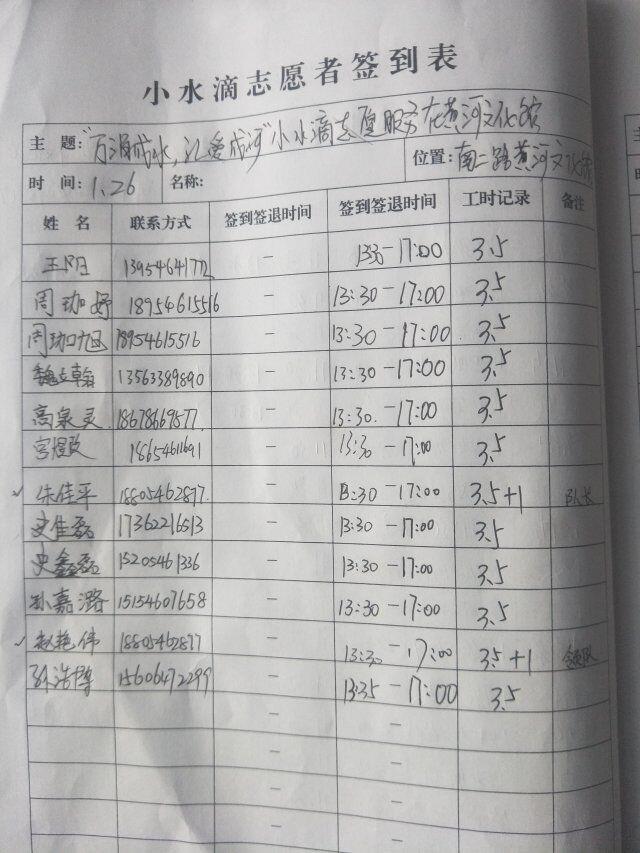 小水滴志愿者签到表
主 题："百滴成水,汇爱成河"小水滴志愿服务在黄河文化馆
位置：南二路黄河文化馆
时 间：1.26 名称：
姓 名 联系方式 签到签退时间 签到签退时间 工时记录 备注
王 13954641772 - 1330-17:00 3.5
周珈妤 18954615516 - 13:30-17:00 3.5
周珈旭 18954615516 - 13:30-17:00 3.5
魏立翰 13563389890 - 13:30-17:00 3.5
高泉灵 18678669577 - 13:30.-17:00 3.5
宫煜 18654611691 - 13:30-17:00 3.5
✓ 朱佳平 18805462877. - 13:30-17:00 3.5+1 队长
史佳磊 17362216513 - 13:30-17:00 3.5
史鑫磊 15205461336 - 13:30-17:00 3.5
孙嘉潞 15154607658 - 13:30-17:00 3.5
✓ 赵艳伟 18805462877 - 13:30-17:00 3.5+1 领队
孙浩博 15606472299 - 13:35-17:00 3.5
- -
- -
- -
- -